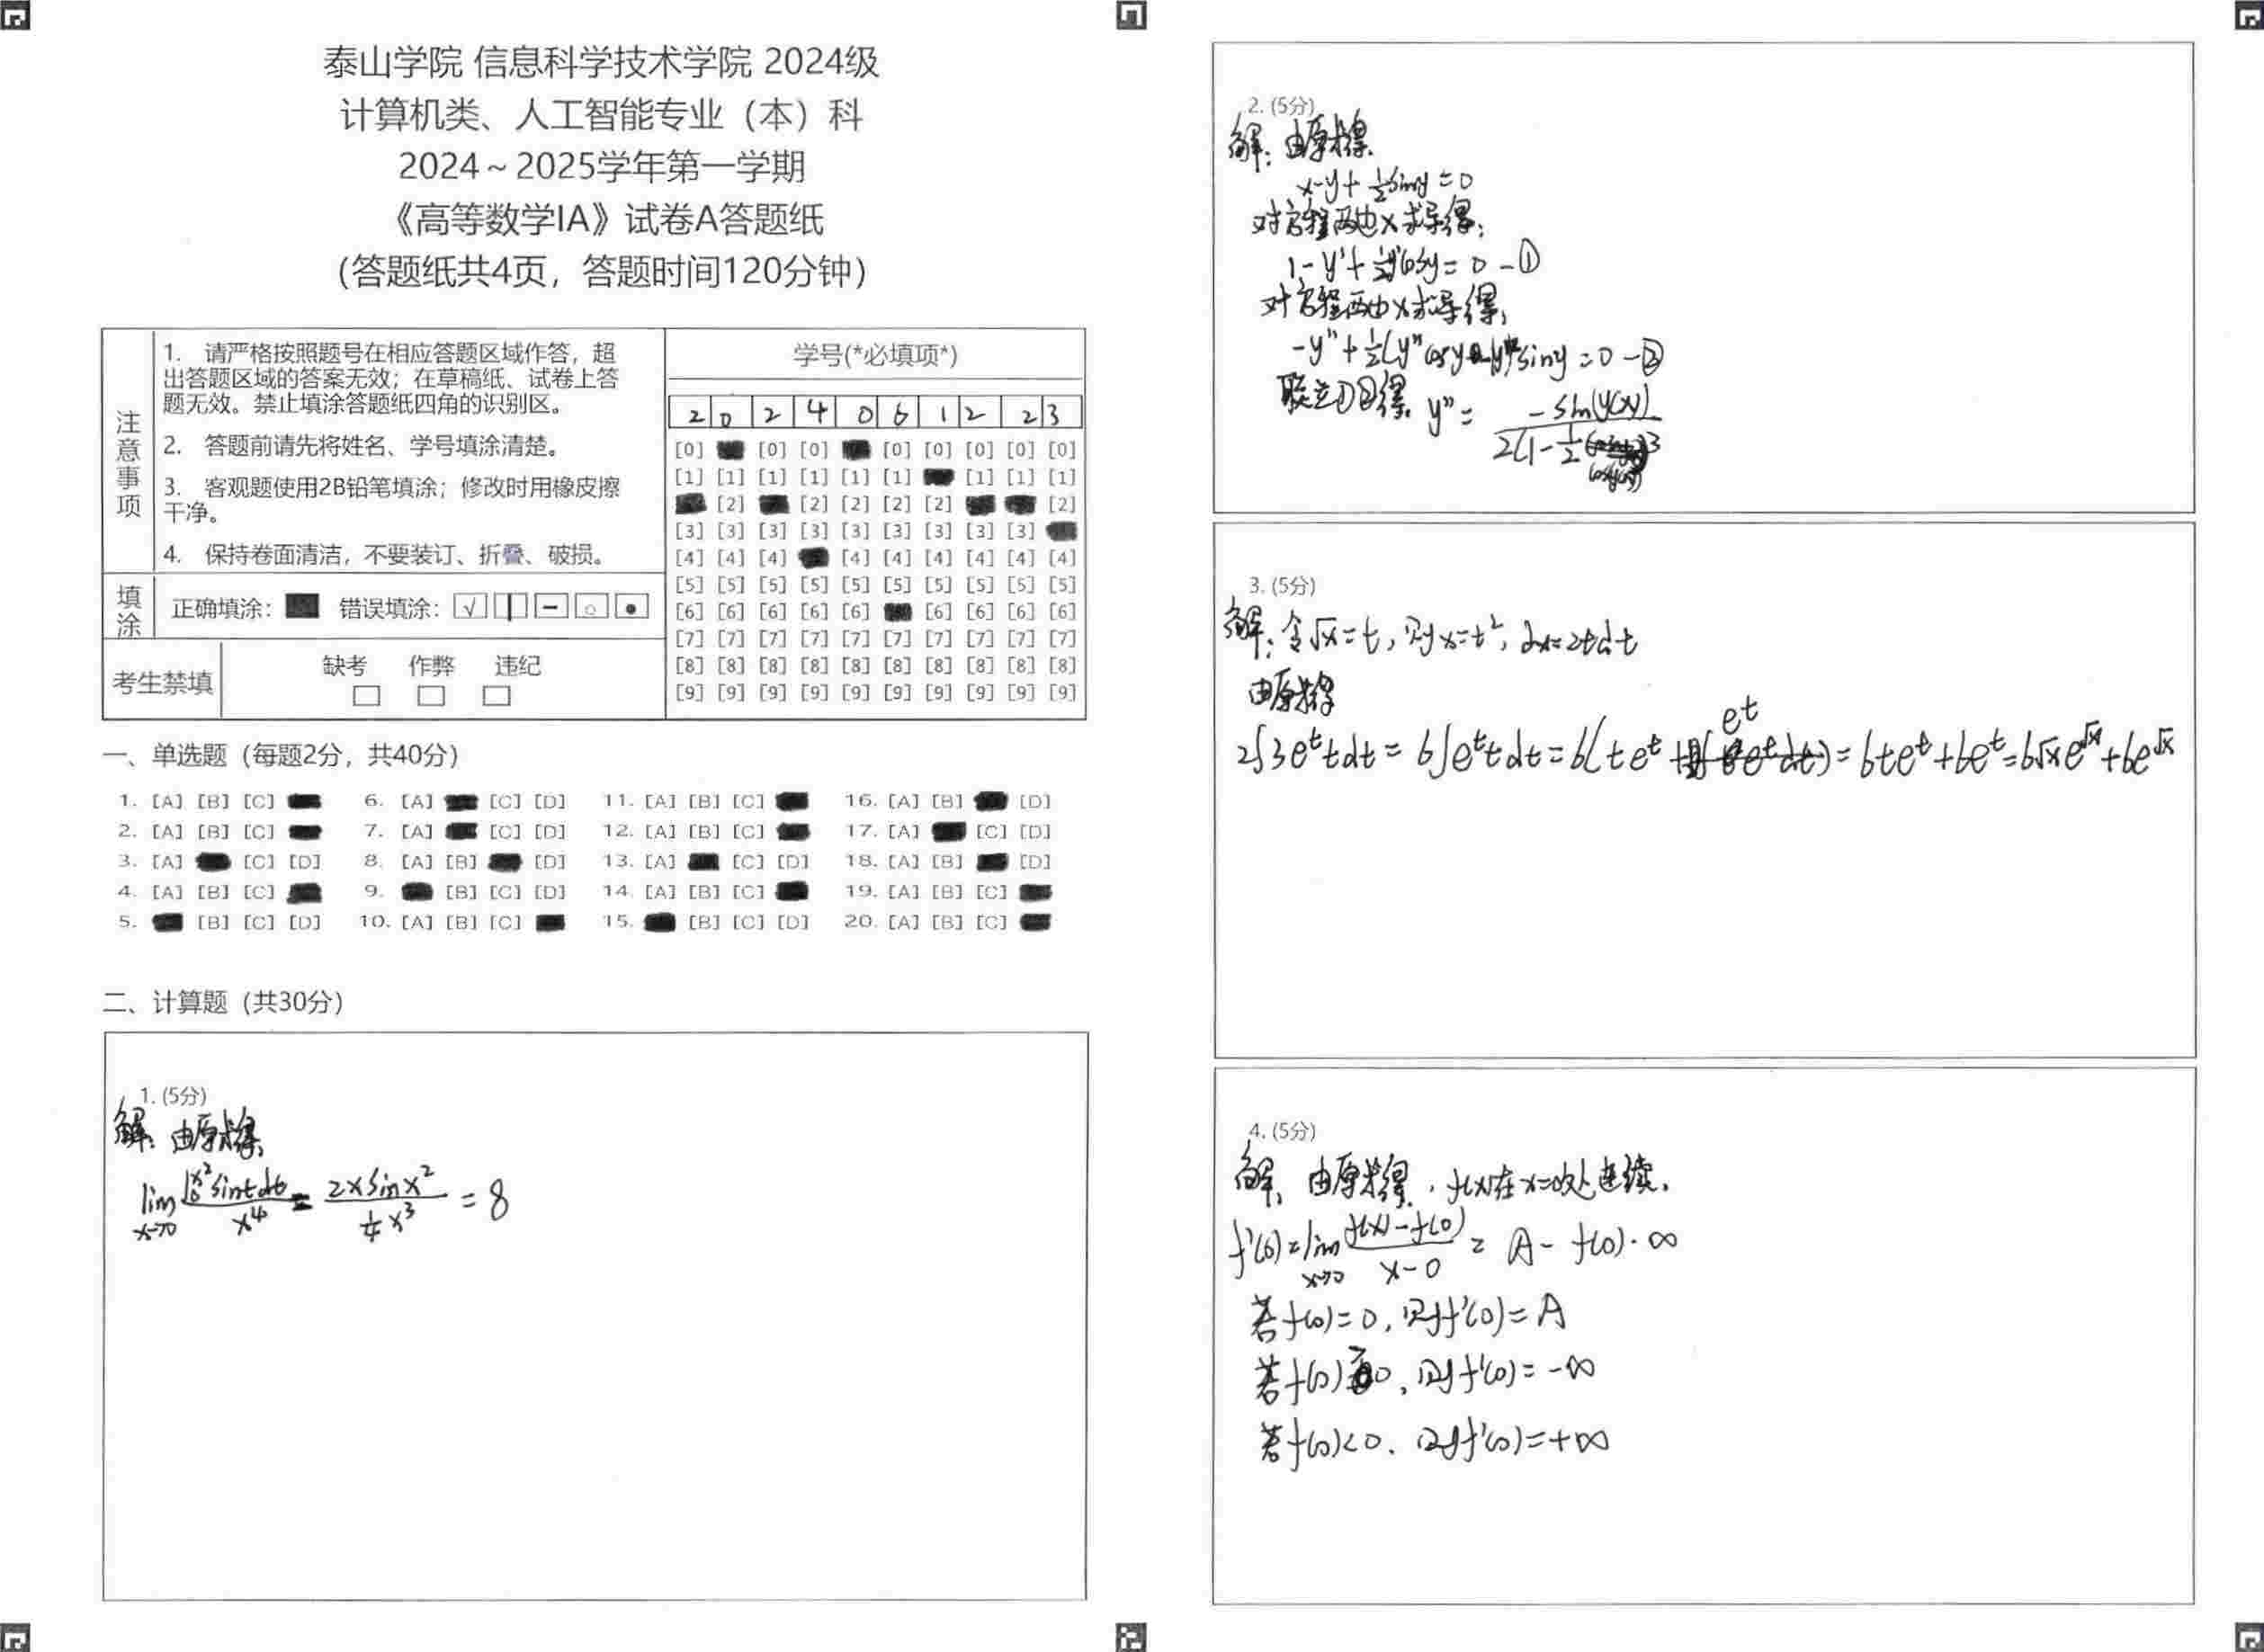 泰山学院 信息科学技术学院 2024级
计算机类、人工智能专业（本）科
2024～2025学年第一学期
《高等数学IA》试卷A答题纸
（答题纸共4页，答题时间120分钟）
注意事项
1. 请严格按照题号在相应答题区域作答，超
出答题区域的答案无效；在草稿纸、试卷上答
题无效。禁止填涂答题纸四角的识别区。
2. 答题前请先将姓名、学号填涂清楚。
3. 客观题使用2B铅笔填涂；修改时用橡皮擦
干净。
4. 保持卷面清洁，不要装订、折叠、破损。
填涂
正确填涂： 错误填涂：
考生禁填
缺考 作弊 违纪
学号(*必填项*)
2 0 2 4 0 6 1 2 2 3
[0] [0] [0] [0] [0] [0] [0] [0]
[1] [1] [1] [1] [1] [1] [1] [1] [1]
[2] [2] [2] [2] [2] [2]
[3] [3] [3] [3] [3] [3] [3] [3] [3]
[4] [4] [4] [4] [4] [4] [4] [4] [4]
[5] [5] [5] [5] [5] [5] [5] [5] [5] [5]
[6] [6] [6] [6] [6] [6] [6] [6] [6]
[7] [7] [7] [7] [7] [7] [7] [7] [7] [7]
[8] [8] [8] [8] [8] [8] [8] [8] [8] [8]
[9] [9] [9] [9] [9] [9] [9] [9] [9] [9]
一、单选题（每题2分，共40分）
1. [A] [B] [C] 6. [A] [C] [D] 11. [A] [B] [C] 16. [A] [B] [D]
2. [A] [B] [C] 7. [A] [C] [D] 12. [A] [B] [C] 17. [A] [C] [D]
3. [A] [C] [D] 8. [A] [B] [D] 13. [A] [C] [D] 18. [A] [B] [D]
4. [A] [B] [C] 9. [B] [C] [D] 14. [A] [B] [C] 19. [A] [B] [C]
5. [B] [C] [D] 10. [A] [B] [C] 15. [B] [C] [D] 20. [A] [B] [C]
二、计算题（共30分）
1. (5分)
解：由原式得
lim x→0 ∫₀^x² sint dt / x⁴ = 2x sinx² / ¼x³ = 8
2. (5分)
解：由原式得
x-y+½siny=0
对方程两边x求导得：
1-y'+½y'cosy=0 -①
对方程两边x求导得，
-y''+½(y''cosy-y' siny=0 -②
联立①②得 y''= -sin(y(x)) / 2(1-½cos(y(x)))³
3. (5分)
解：令√x=t，则x=t²，dx=2tdt
由原式得
2∫3e^t tdt = 6∫e^t tdt = 6(te^t + e^t) = 6te^t+6e^t=6√x e^√x+6e^√x
4. (5分)
解，由原式得，f(x)在x=0处连续，
f'(0)=lim x→0 f(x)-f(0) / x-0 = A - f(0)·∞
若f(0)=0，则f'(0)=A
若f(0)>0，则f'(0)=-∞
若f(0)<0，则f'(0)=+∞